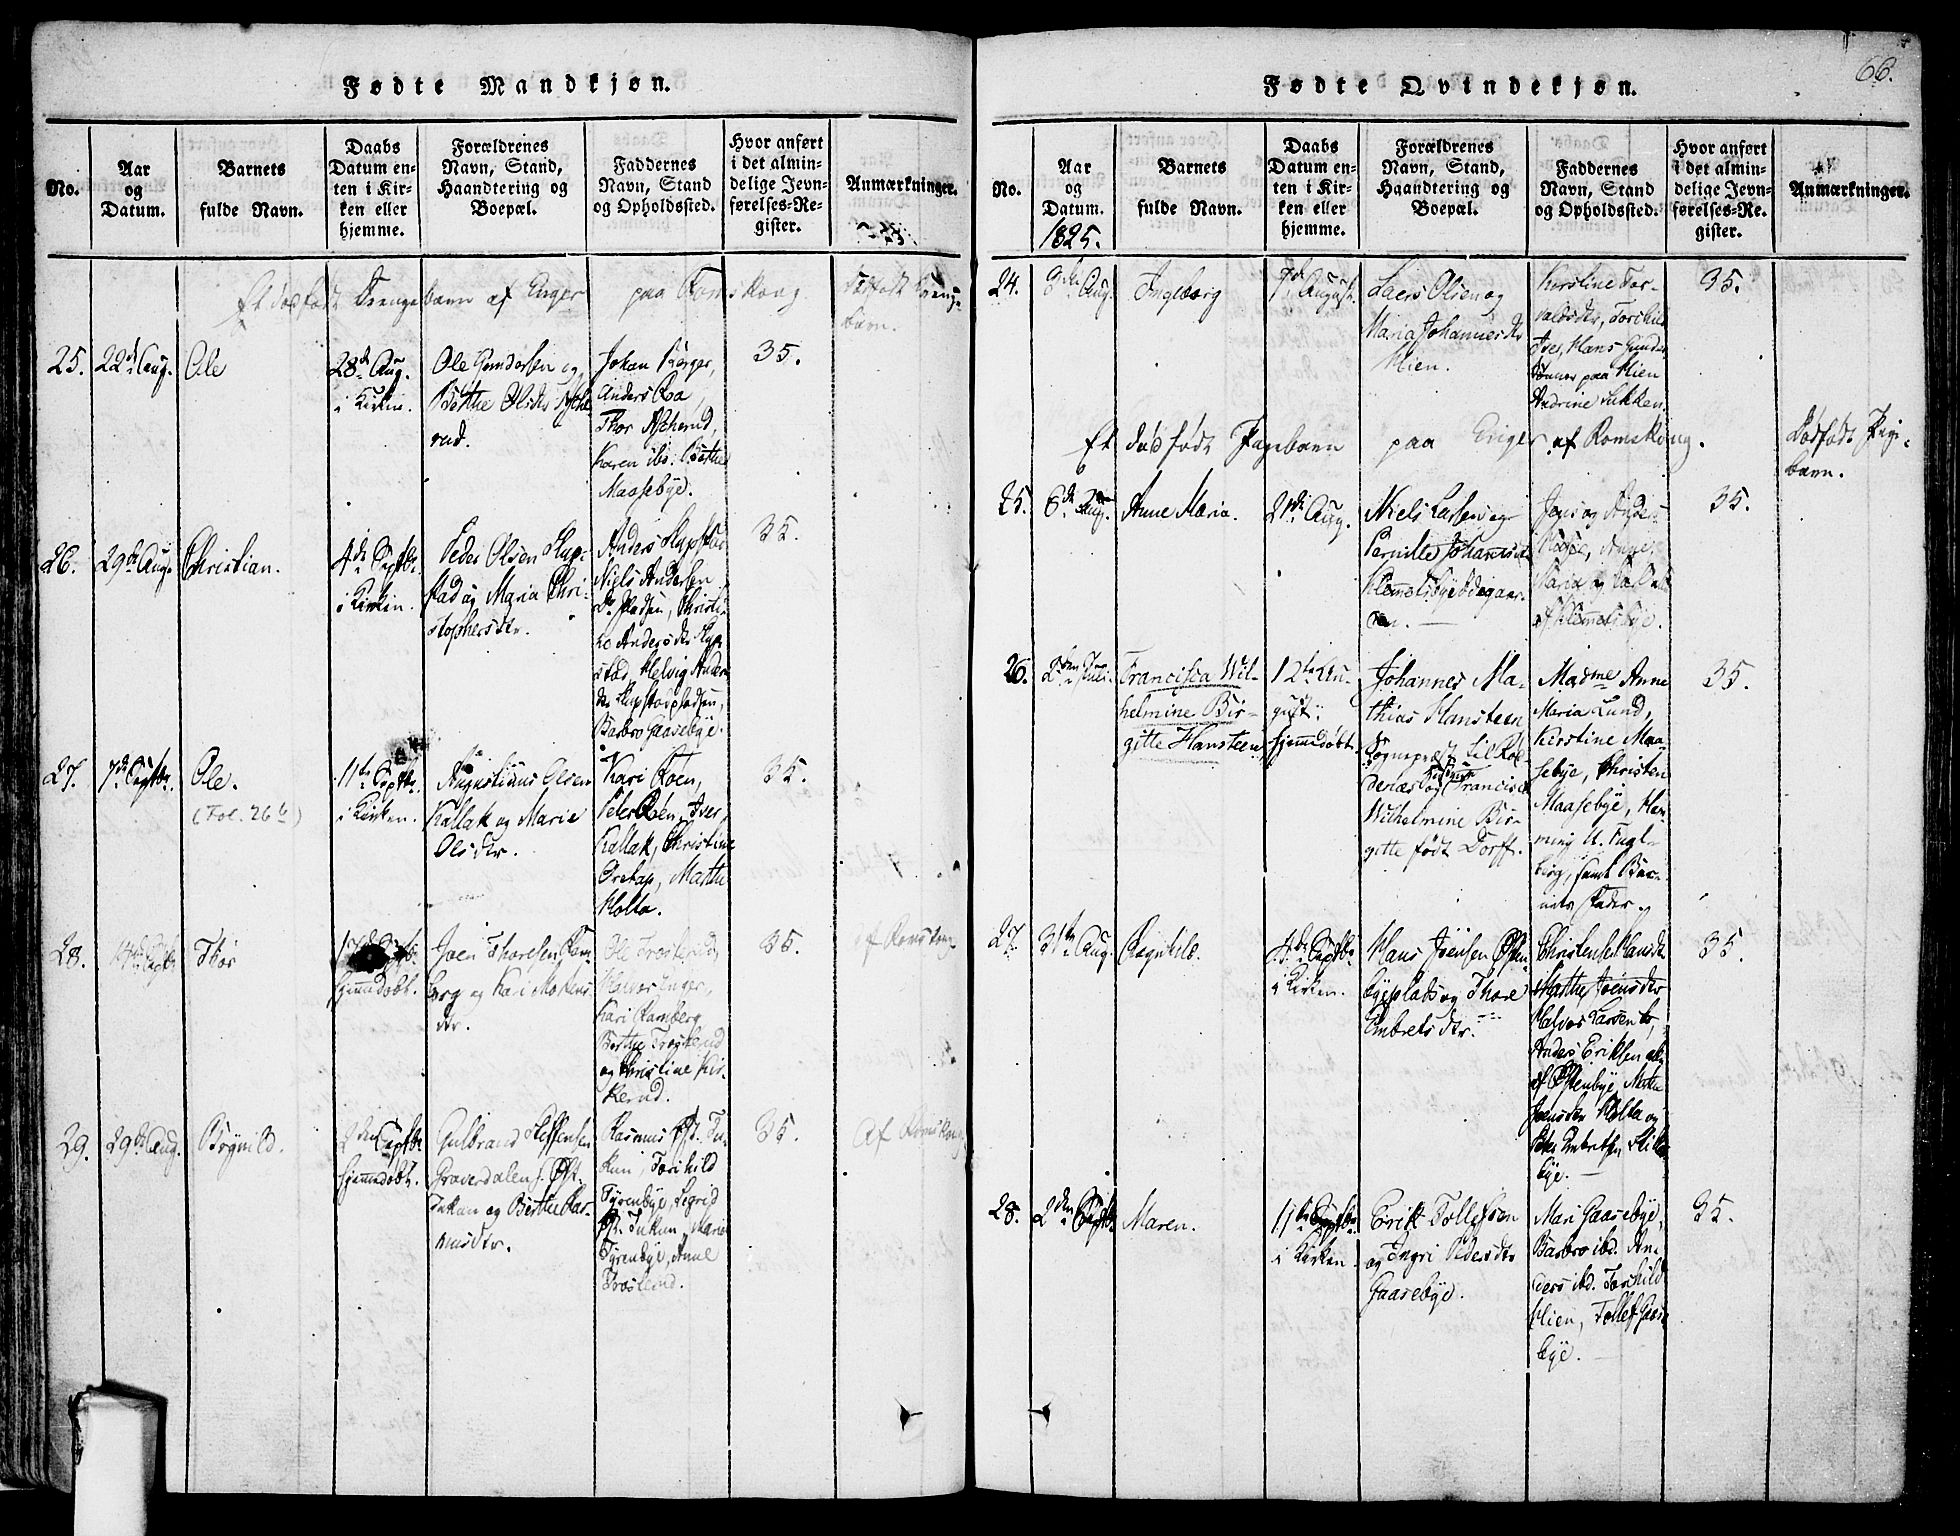 66.
Fødte Mandkjøn.
No.
Aar
og
Datum.
Barnets
fulde Navn.
Daabs
Datum en-
ten i Kir-
ken eller
hjemme.
Forældrenes
Navn, Stand,
Haandtering og
Boepæl.
Faddernes
Navn, Stand
og Opholdssted.
Hvor anført
i det almin-
delige Jevn-
førelses-Re-
gister.
Anmærkninger.
Et dødfødt Drengebarn af Enger paa Romskoug
dødfødt Drenge-
barn.
25. 22de Aug. Ole
28de Aug.
i Kirken.
Ole Gundersen og
Berthe Olsdtr Asche-
rud.
Johan Berger,
Anders Roa,
Thor Ascherud,
Karen ibd. Berthe
Maasebye.
35.
26. 29de Aug. Christian.
4de Septbr
i Kirken.
Peder Olsen Slup-
stad og Maria Chri-
stophersdtr.
Anders
Niels Andersen
Andersdtr
Helvig
Barbro Gaasebye.
35.
27. 7de Septbr. Ole.
(Fol. 26b)
11te Septbr.
i Kirken.
Augustinus Olsen
Kallak og Marie
Olsdtr.
Kari Roen,
Peter Roen, Iver
Kallak, Christine
Marthe
Holta.
35.
28. Thor
hjemmedøbt.
Joen Thoresen Ram-
berg og Kari
dtr.
Ole
Halvor Enger,
Kari Ramberg
Berthe
og Christine Kir-
kerud.
35.
af Romskoug
29. 29de Aug. Brynild.
2den Septbr
hjemmedøbt.
Gulbrand Steffensen
Graverdalen
Tukun og Berthe Ras-
musdtr.
Rasmus Øst. Tu-
kun, Torchild
Tyrenbye, Sigrid
Øst. Tukun, Marie
Tyrenbye, Anne
Troserud.
35.
Af Romskoug
Fødte Qvindekjøn.
No.
Aar
og
Datum.
1825.
Barnets
fulde Navn.
Daabs
Datum en-
ten i Kir-
ken eller
hjemme.
Forældrenes
Navn, Stand,
Haandtering og
Boepæl.
Faddernes
Navn, Stand
og Opholdssted.
Hvor anført
i det almin-
delige Jevn-
førelses-Re-
gister.
Anmærkninger.
24. 3de Aug. Ingeborg
7de August.
Laers Olsen og
Maria Johannesdtr
Klien.
Kirstine Tor-
valdsdtr, Torchild
Iver, Hans Gunder
paa Klien
Andrine Lukken.
35.
Et dødfødt Pigebarn paa Enger af Romskoug.
Dødfødt Pige-
barn.
25. 6de Aug. Anne Maria.
21de Aug.
Niels Larsen og
Pernille Johannesdr
Klemetsbye Ødegaar-
den.
Jens og Anders
Anne
Maria og
af Klemetsbye.
35.
26. 2den Juli. Francisca Wil-
helmine Bir-
gitte Hansteen
12te Au-
gust.
hjemmedøbt.
Johannes Ma-
thias Hansteen
Sognepræst til Rø-
denæs og Francisca
Wilhelmine Bir-
gitte født Dorff.
Madme Anne
Maria Lund,
Kirstine Maa-
sebye, Christen
Maasebye, Hen-
ning U. Fugl-
berg, samt Bar-
nets Fader.
35.
27. 31te Aug. Ragnhild.
4de Septbr
i Kirken.
Hans Joensen Østen-
byeplads og Thore
Embretsdtr.
Christense Hansdtr
Marthe Joensdtr
Halvor Larsen
Anders Eriksen
af Østenbye, Marthe
Joensdtr Holta og
Embretsen
bye.
35.
28. 2den Septbr. Maren.
11te Septbr
i Kirken.
Erik Tollefsen
og Ingri Pedersdtr
Gaasebye.
Mari Gaasebye,
Barbro ibd. An-
ders ibd. Torchild
Klien, Tollef Gaase-
bye.
35.